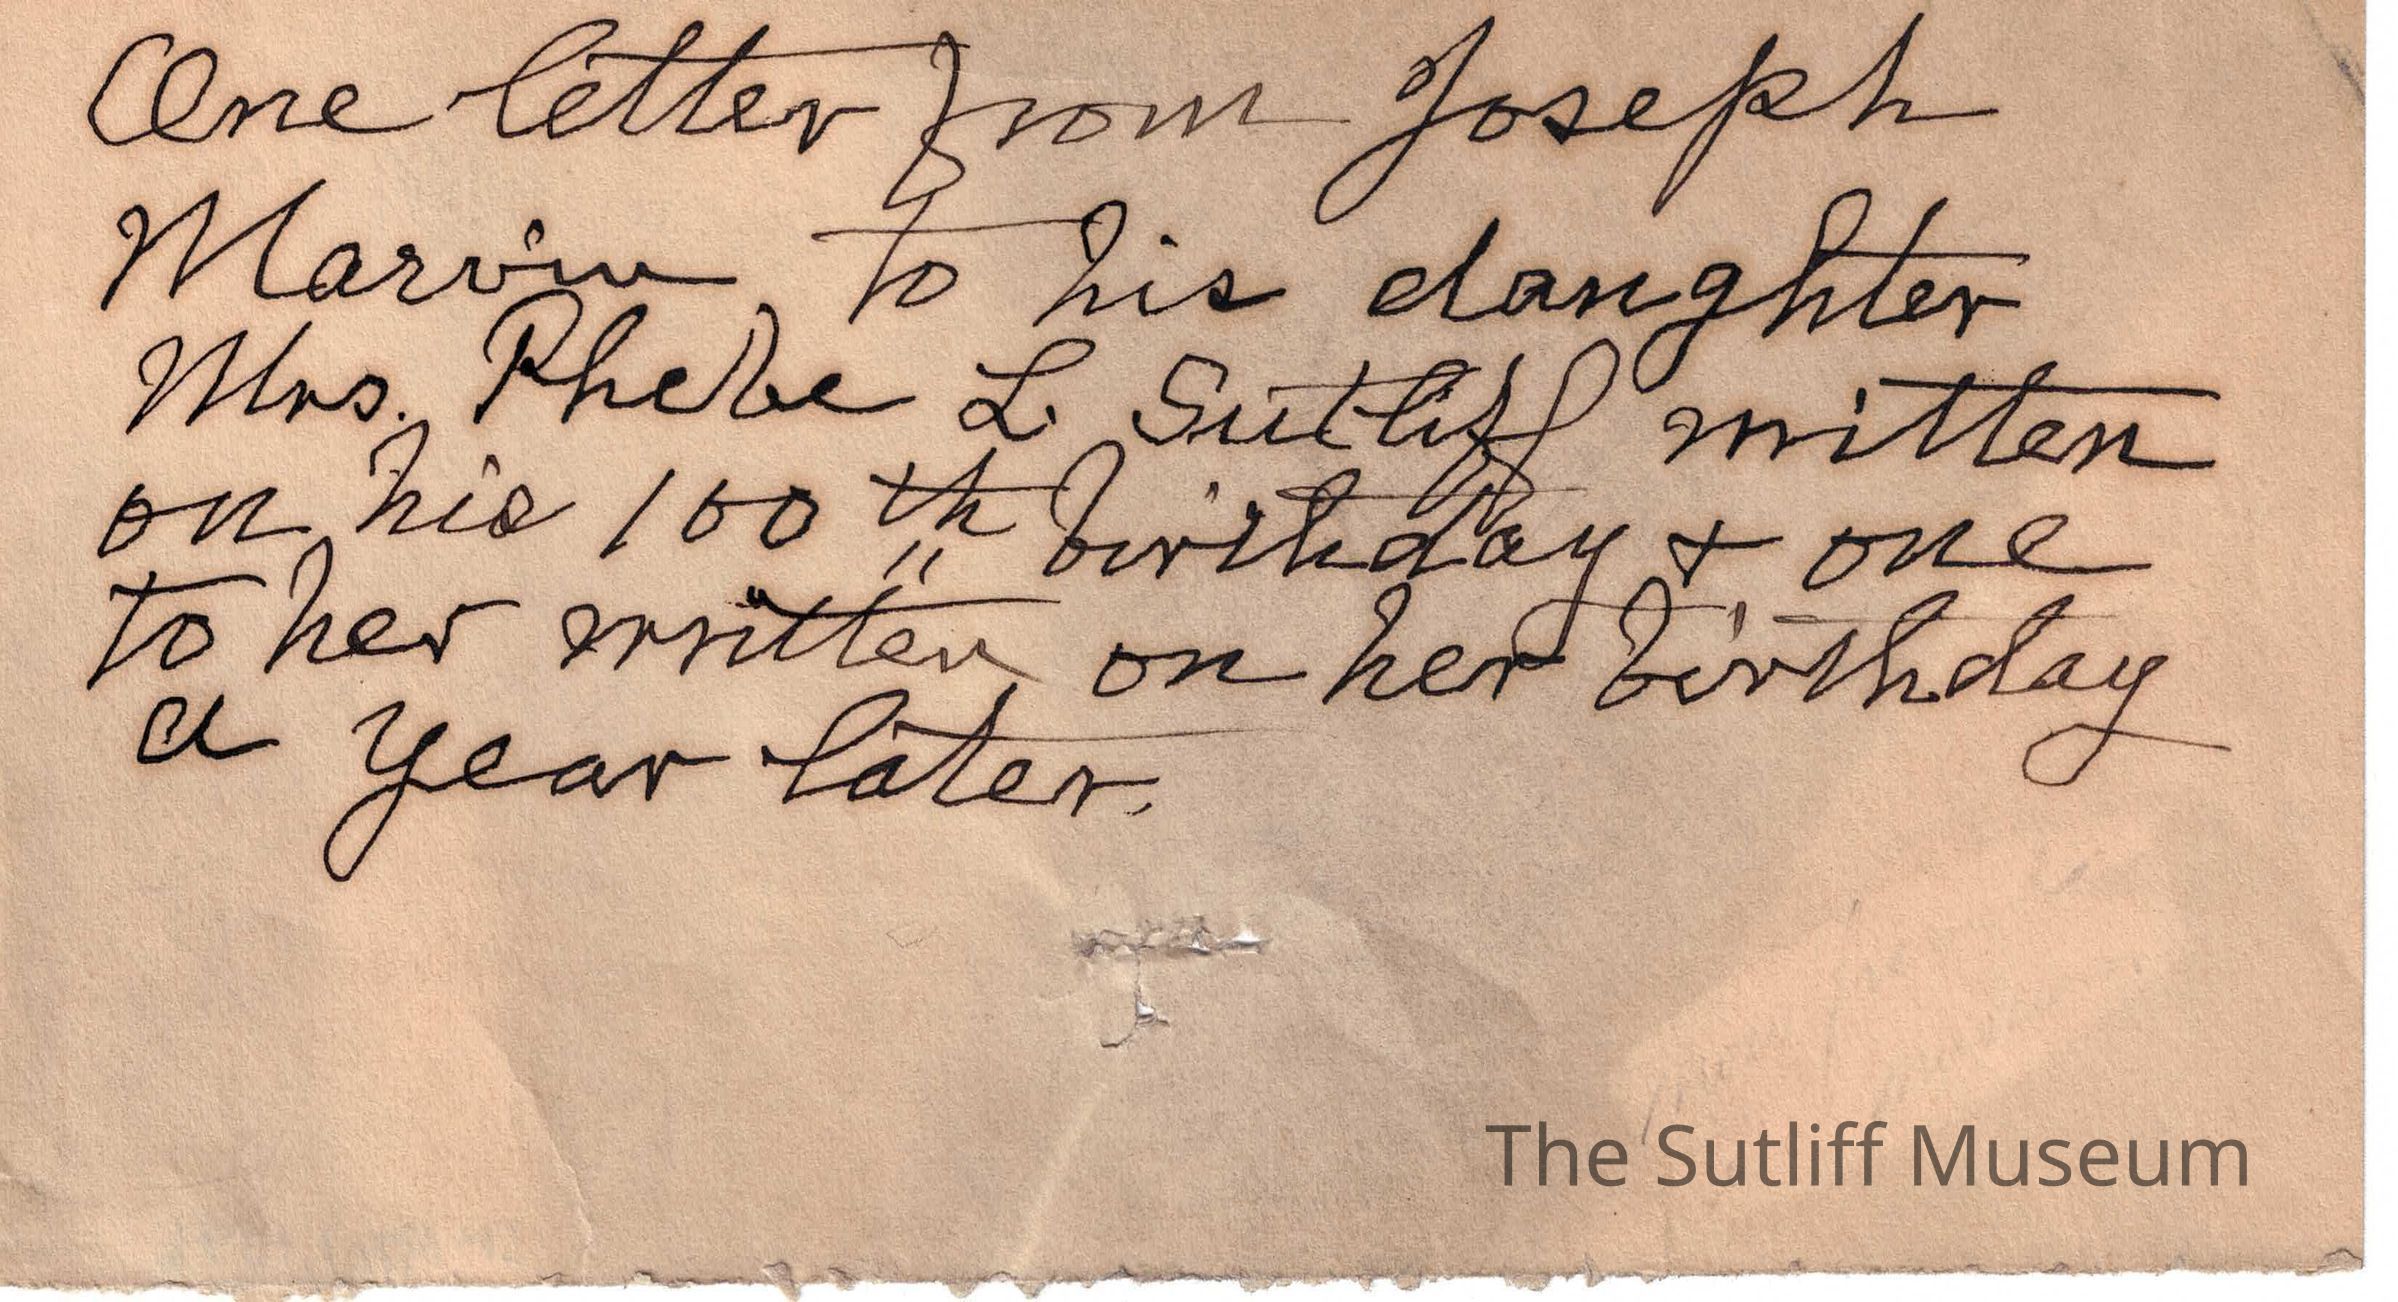 One letter from Joseph
Marvin to his daughter
Mrs. Phebe L. Sutliff written
on his 100th birthday + one
to her written on her birthday
a year later.
The Sutliff Museum